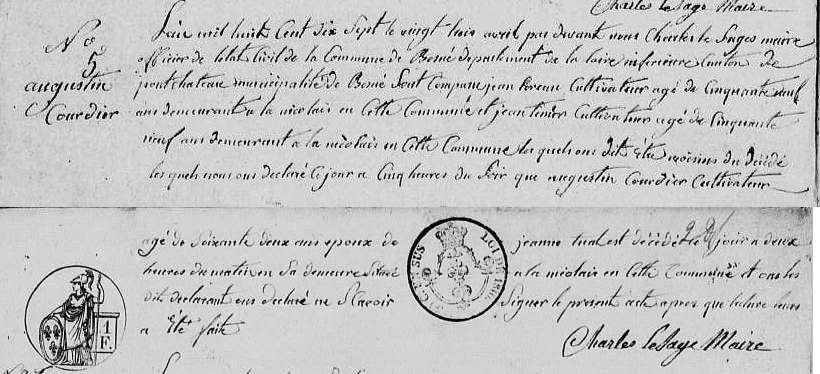 Charles LeSage Maire
No
5
augustin
Courdier
L'an mil huit Cent dix Sept le vingt trois avril par devant nous Charles le Sages maire
officier de letat Civil de la Commune de Besné departement de la loire inferieure Canton de
pontchateau municipalité de Besné Sont Comparu jean Cultivateur agé de Cinquante neuf
ans demeurant a la nicolais en Cette Commune et jean Cultivateur agé de Cinquante
neuf ans demeurant a la nicolais en Cette Commune les quels ons dit etre voisins du décédé
les quels nous ons declaré Ce jour a Cinq heures du Soir que augustin Courdier Cultivateur
agé de Soixante deux ans epoux de jeanne tual est décédé le jour a deux
heures du matin en Sa demeure Situé a la nicolais en Cette Commune et ons les
dits declarant ons declaré ne Scavoir Signer le present acte apres que lecture leurs
a été faite
Charles LeSage Maire
1
F.